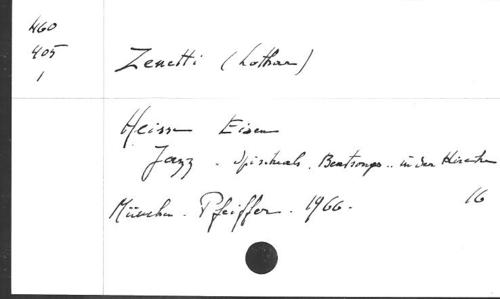 460
405
1
Zenetti (Lothar)
Heisse Eisen
Jazz. Spirituals. Beatsongs.. in der Kirche
München. Pfeiffer. 1966.
16